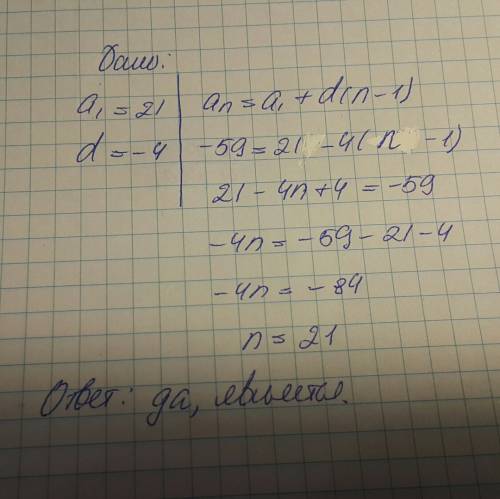 Дано:
a₁ = 21
d = -4
aₙ = a₁ + d(n-1)
-59 = 21 - 4(n - 1)
21 - 4n + 4 = -59
-4n = -59 - 21 - 4
-4n = -84
n = 21
Ответ: да, является.